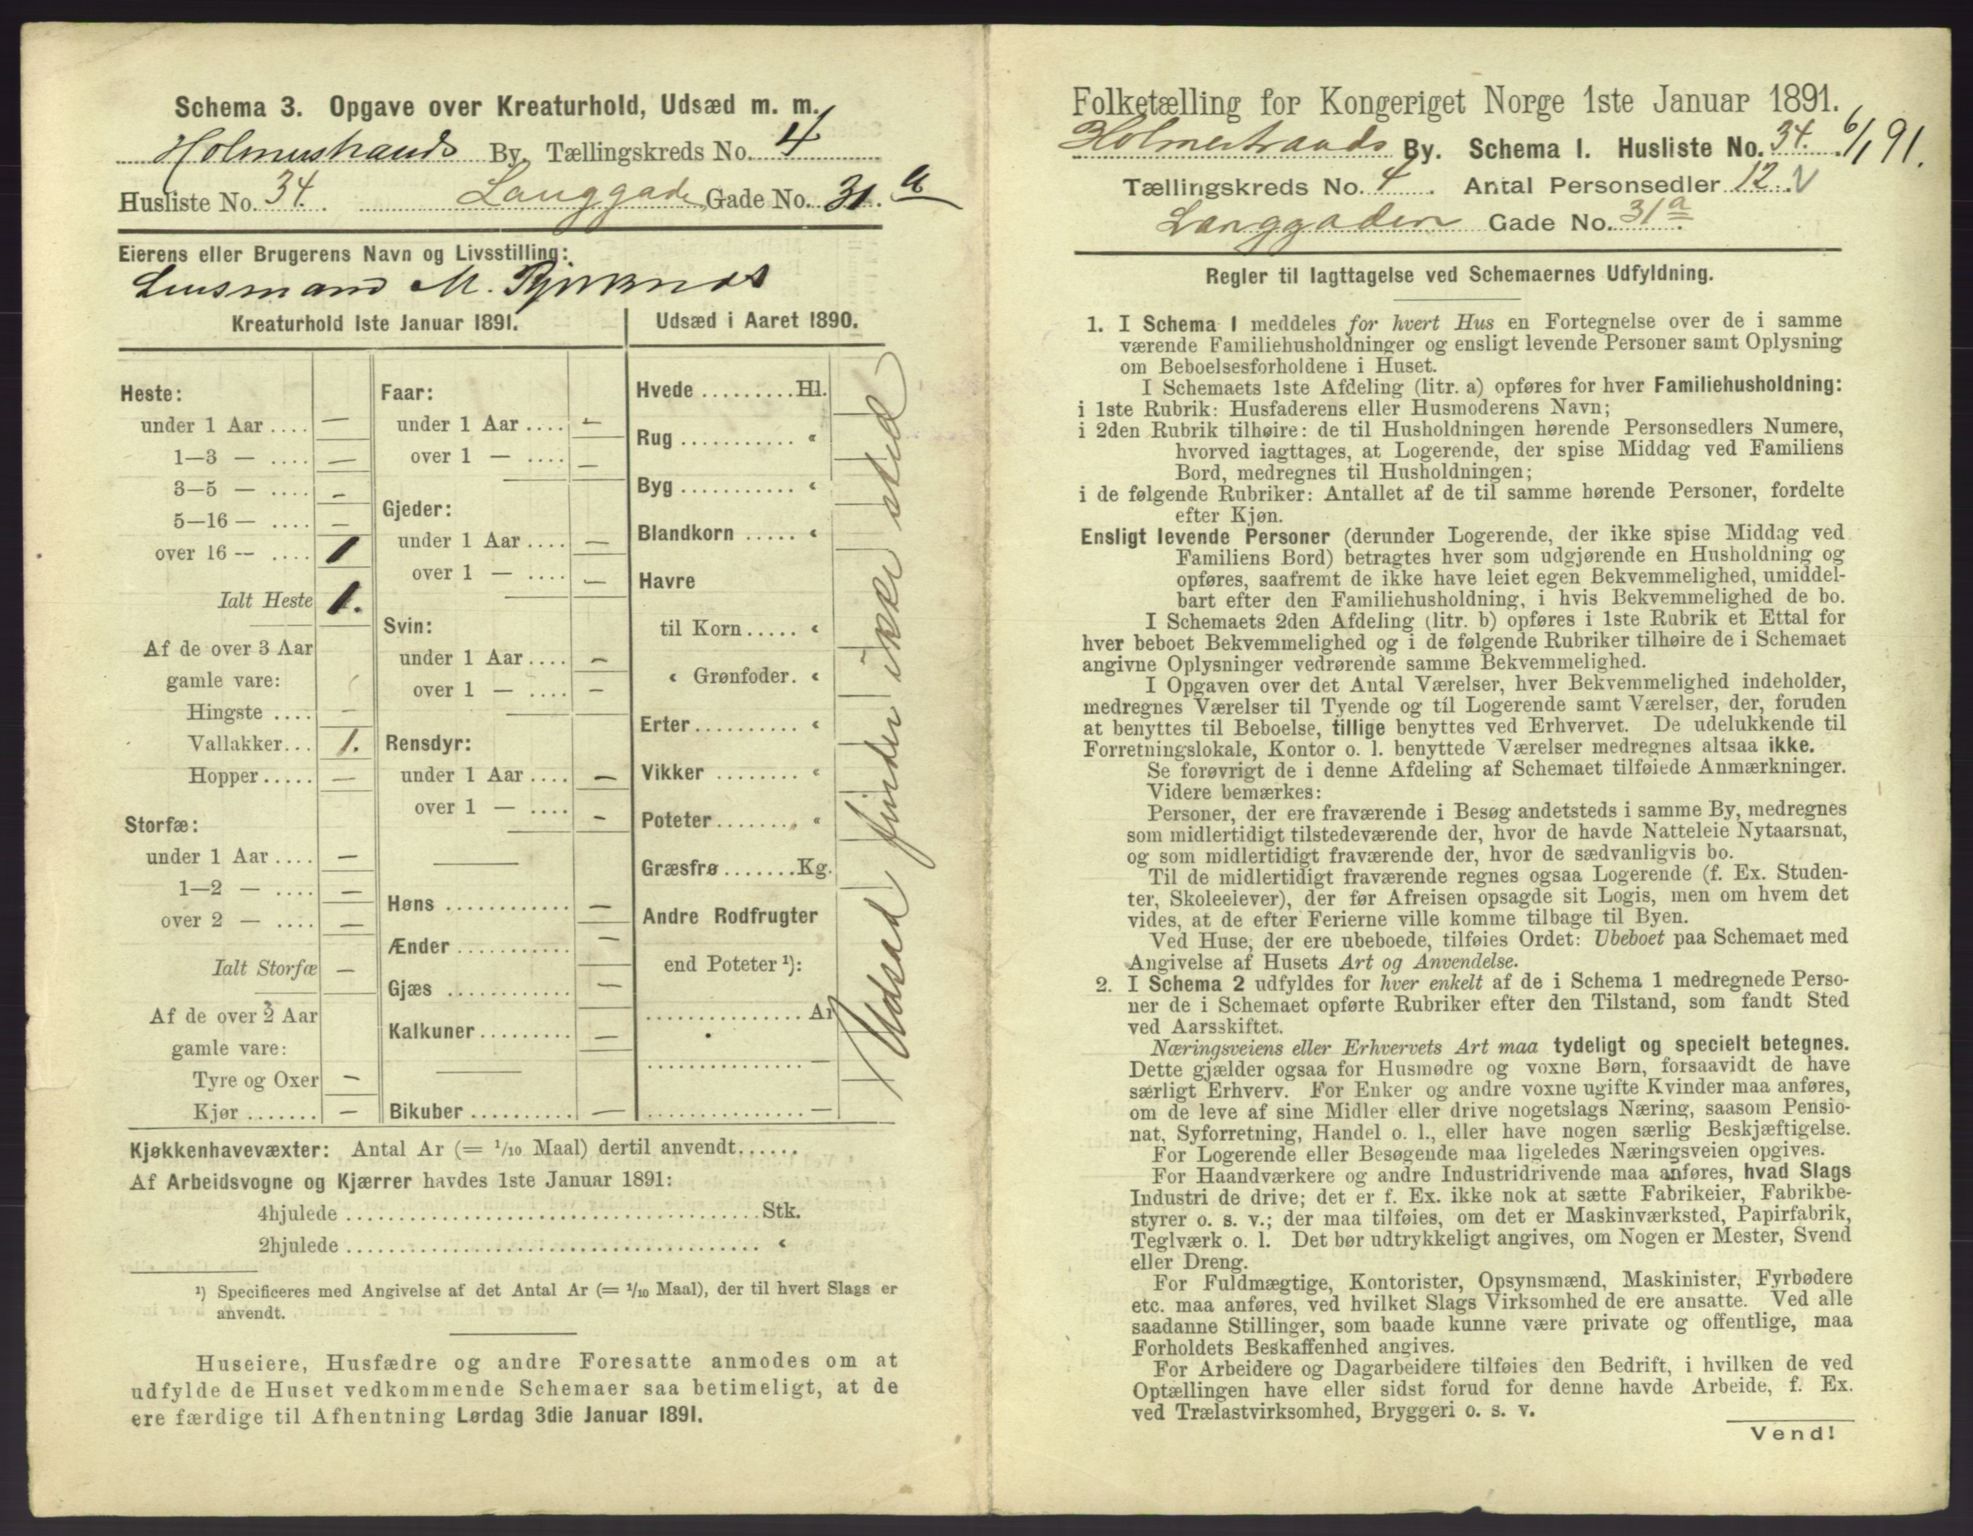 Schema 3. Opgave over Kreaturhold, Udsæd m. m.
Holmestrands By. Tællingskreds No. 4
Husliste No. 34. Langgade Gade No. 31. a
Eierens eller Brugerens Navn og Livsstilling:
Lensmand M.
Kreaturhold 1ste Januar 1891.
Heste:
under 1 Aar .... —
1—3 — .... —
3—5 — .... —
5—16 — .... —
over 16 — .... 1
Ialt Heste 1.
Af de over 3 Aar
gamle vare:
Hingste .... —
Vallakker... 1.
Hopper..... —
Storfæ:
under 1 Aar .... —
1—2 — .... —
over 2 — .... —
Ialt Storfæ —
Af de over 2 Aar
gamle vare:
Tyre og Oxer —
Kjør ....... —
Faar:
under 1 Aar .... —
over 1 — .... —
Gjeder:
under 1 Aar .... —
over 1 — .... —
Svin:
under 1 Aar .... —
over 1 — .... —
Rensdyr:
under 1 Aar .... —
over 1 — .... —
Høns ............ —
Ænder ........... —
Gjæs ............ —
Kalkuner......... —
Bikuber .......... —
Udsæd i Aaret 1890.
Hvede ......... Hl.
Rug ........... “
Byg ........... “
Blandkorn ..... “
Havre
til Korn..... “
“ Grønfoder. “
Erter .......... “
Vikker ........ “
Poteter........ “
Græsfrø ....... Kg.
Andre Rodfrugter
end Poteter ¹):
................ Ar
................ —
................ —
Udsæd finder ikke sted
Kjøkkenhavevæxter: Antal Ar (= 1/10 Maal) dertil anvendt......
Af Arbeidsvogne og Kjærrer havdes 1ste Januar 1891:
4hjulede ..................................... Stk.
2hjulede ..................................... “
¹) Specificeres med Angivelse af det Antal Ar (= 1/10 Maal), der til hvert Slags er
anvendt.
Huseiere, Husfædre og andre Foresatte anmodes om at
udfylde de Huset vedkommende Schemaer saa betimeligt, at de
ere færdige til Afhentning Lørdag 3die Januar 1891.
Folketælling for Kongeriget Norge 1ste Januar 1891.
Holmestrands By. Schema 1. Husliste No. 34. 6/1 91.
Tællingskreds No. 4. Antal Personsedler 12. √
Langgaden Gade No. 31a
Regler til Iagttagelse ved Schemaernes Udfyldning.
1. I Schema 1 meddeles for hvert Hus en Fortegnelse over de i samme
værende Familiehusholdninger og ensligt levende Personer samt Oplysning
om Beboelsesforholdene i Huset.
I Schemaets 1ste Afdeling (litr. a) opføres for hver Familiehusholdning:
i 1ste Rubrik: Husfaderens eller Husmoderens Navn;
i 2den Rubrik tilhøire: de til Husholdningen hørende Personsedlers Numere,
hvorved iagttages, at Logerende, der spise Middag ved Familiens
Bord, medregnes til Husholdningen;
i de følgende Rubriker: Antallet af de til samme hørende Personer, fordelte
efter Kjøn.
Ensligt levende Personer (derunder Logerende, der ikke spise Middag ved
Familiens Bord) betragtes hver som udgjørende en Husholdning og
opføres, saafremt de ikke have leiet egen Bekvemmelighed, umiddel-
bart efter den Familiehusholdning, i hvis Bekvemmelighed de bo.
I Schemaets 2den Afdeling (litr. b) opføres i 1ste Rubrik et Ettal for
hver beboet Bekvemmelighed og i de følgende Rubriker tilhøire de i Schemaet
angivne Oplysninger vedrørende samme Bekvemmelighed.
I Opgaven over det Antal Værelser, hver Bekvemmelighed indeholder,
medregnes Værelser til Tyende og til Logerende samt Værelser, der, foruden
at benyttes til Beboelse, tillige benyttes ved Erhvervet. De udelukkende til
Forretningslokale, Kontor o. l. benyttede Værelser medregnes altsaa ikke.
Se forøvrigt de i denne Afdeling af Schemaet tilføiede Anmærkninger.
Videre bemærkes:
Personer, der ere fraværende i Besøg andetsteds i samme By, medregnes
som midlertidigt tilstedeværende der, hvor de havde Natteleie Nytaarsnat,
og som midlertidigt fraværende der, hvor de sædvanligvis bo.
Til de midlertidigt fraværende regnes ogsaa Logerende (f. Ex. Studen-
ter, Skoleelever), der før Afreisen opsagde sit Logis, men om hvem det
vides, at de efter Ferierne ville komme tilbage til Byen.
Ved Huse, der ere ubeboede, tilføies Ordet: Ubeboet paa Schemaet med
Angivelse af Husets Art og Anvendelse.
2. I Schema 2 udfyldes for hver enkelt af de i Schema 1 medregnede Perso-
ner de i Schemaet opførte Rubriker efter den Tilstand, som fandt Sted
ved Aarsskiftet.
Næringsveiens eller Erhvervets Art maa tydeligt og specielt betegnes.
Dette gjælder ogsaa for Husmødre og voxne Børn, forsaavidt de have
særligt Erhverv. For Enker og andre voxne ugifte Kvinder maa anføres,
om de leve af sine Midler eller drive nogetslags Næring, saasom Pensio-
nat, Syforretning, Handel o. l., eller have nogen særlig Beskjæftigelse.
For Logerende eller Besøgende maa ligeledes Næringsveien opgives.
For Haandværkere og andre Industridrivende maa anføres, hvad Slags
Industri de drive; det er f. Ex. ikke nok at sætte Fabrikeier, Fabrikbe-
styrer o. s. v.; der maa tilføies, om det er Maskinværksted, Papirfabrik,
Teglværk o. l. Det bør udtrykkeligt angives, om Nogen er Mester, Svend
eller Dreng.
For Fuldmægtige, Kontorister, Opsynsmænd, Maskinister, Fyrbødere
etc. maa anføres, ved hvilket Slags Virksomhed de ere ansatte. Ved alle
saadanne Stillinger, som baade kunne være private og offentlige, maa
Forholdets Beskaffenhed angives.
For Arbeidere og Dagarbeidere tilføies den Bedrift, i hvilken de ved
Optællingen have eller sidst forud for denne havde Arbeide, f. Ex.
ved Trælastvirksomhed, Bryggeri o. s. v.
Vend!